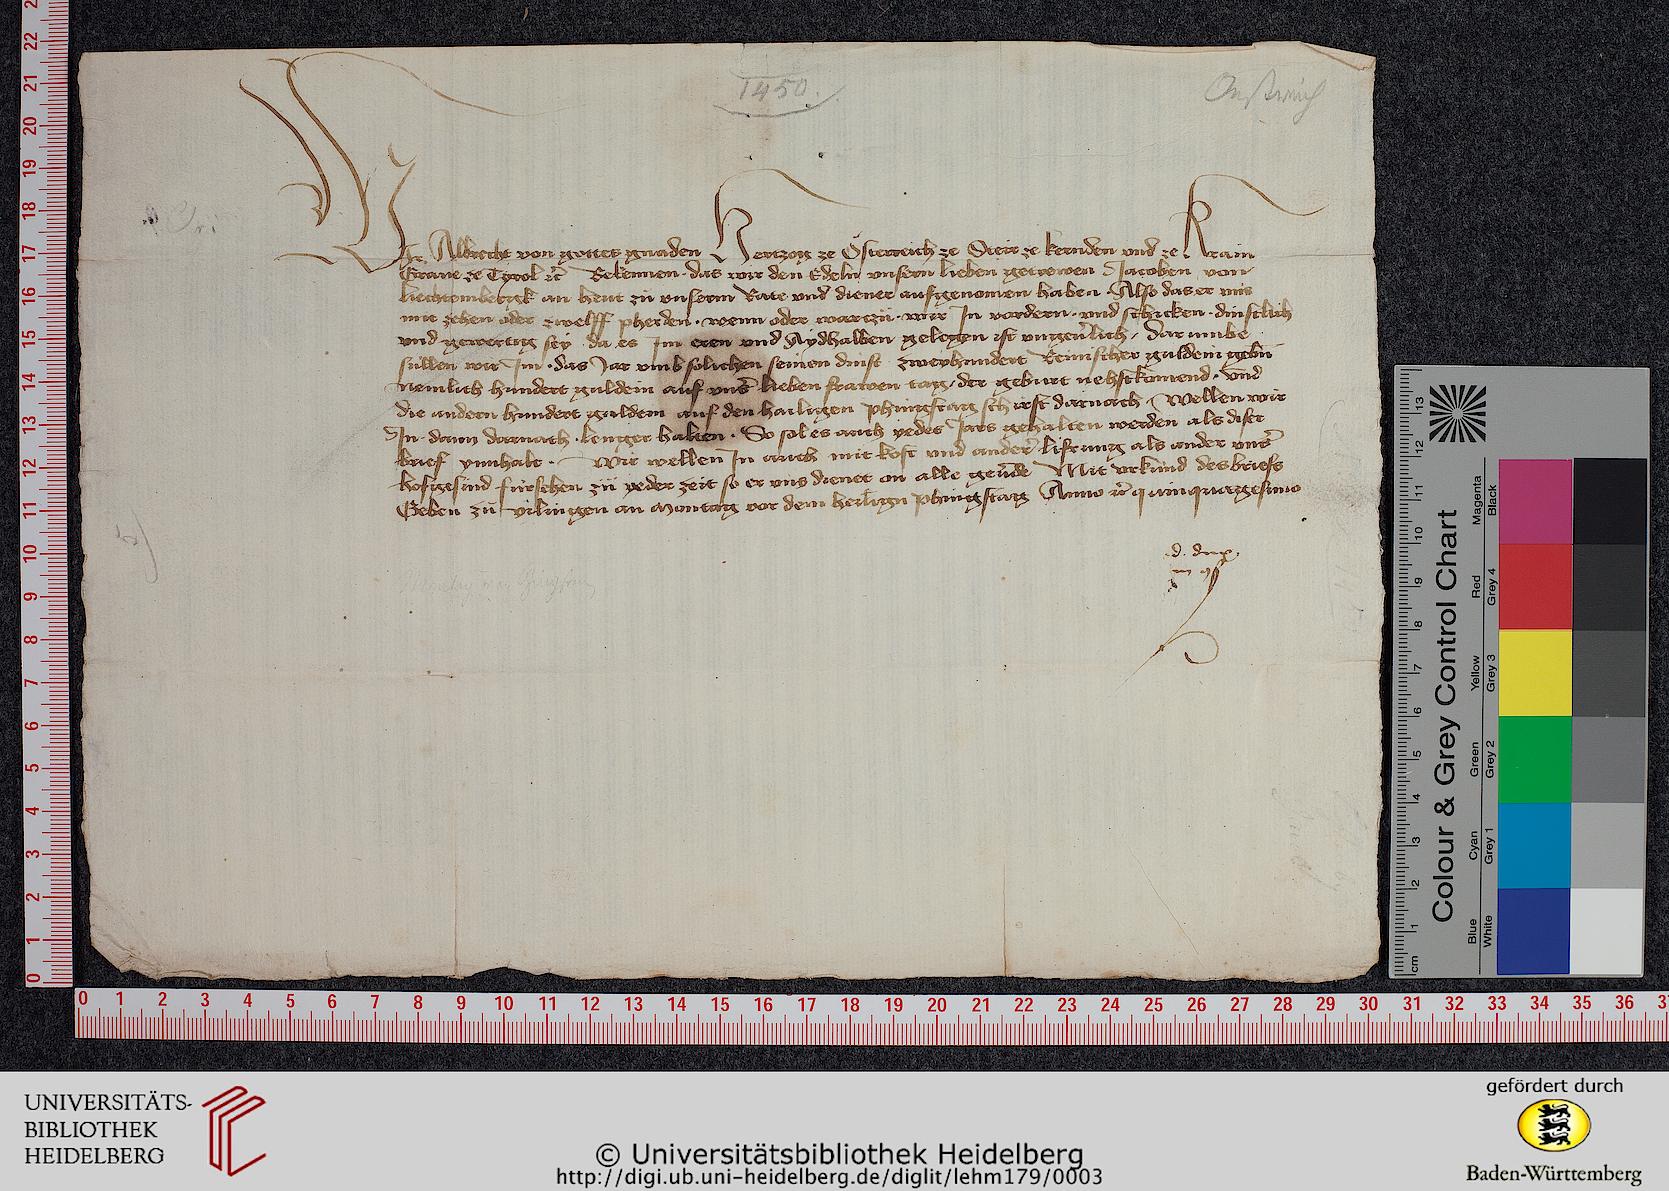 1450.
Wir Albrecht von gottes gnaden Hertzog ze Österreich ze Steir ze kernden und ze Krain
Graue ze Tyrol etc Bekennen das wir den Edeln unsern lieben getrewen Jacoben von
liechtemberg an heut zu unserm Rate und diener aufgenomen haben Also das er uns
mit zehen oder zwelff pherden wenn oder wartzu wir In vordern und schicken dinstlich
und gewerttig sey da es Im eren und Aydhalben gelegen ist ungeuerlich Darumbe
sullen wir Im das Jar umb solichen seinen dinst zweyhundert Reinischer guldein gebn
nemlich hundert guldein auf unser lieben frawen tag der geburt nehstkomend und
die andern hundert guldein auf den hailigen phingstag schirst darnach Wellen wir
In dann darnach lenger halten So sol es auch yedes Jars gehalten werden als diser
brief ynnhalt Wir wellen In auch mit kost und ander lifrung als ander unser
hofgesind fursehen zu yeder zeit so er uns dienet on alle geuerde Mit urkund des briefs
Geben zu Urlingen an Montag vor dem heiligen phingstag Anno etc quinquagesimo
d. dux
UNIVERSITÄTS-
BIBLIOTHEK
HEIDELBERG
© Universitätsbibliothek Heidelberg
http://digi.ub.uni-heidelberg.de/diglit/lehm179/0003
gefördert durch
Baden-Württemberg
Colour & Grey Control Chart
Blue Cyan Green Yellow Red Magenta
White Grey 1 Grey 2 Grey 3 Grey 4 Black
cm 1 2 3 4 5 6 7 8 9 10 11 12 13
0 1 2 3 4 5 6 7 8 9 10 11 12 13 14 15 16 17 18 19 20 21 22
0 1 2 3 4 5 6 7 8 9 10 11 12 13 14 15 16 17 18 19 20 21 22 23 24 25 26 27 28 29 30 31 32 33 34 35 36